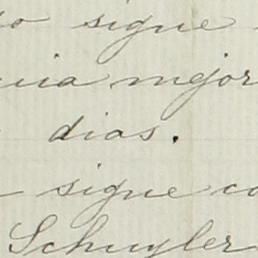 sigue
mejor
dias.
sigue
Schuyler